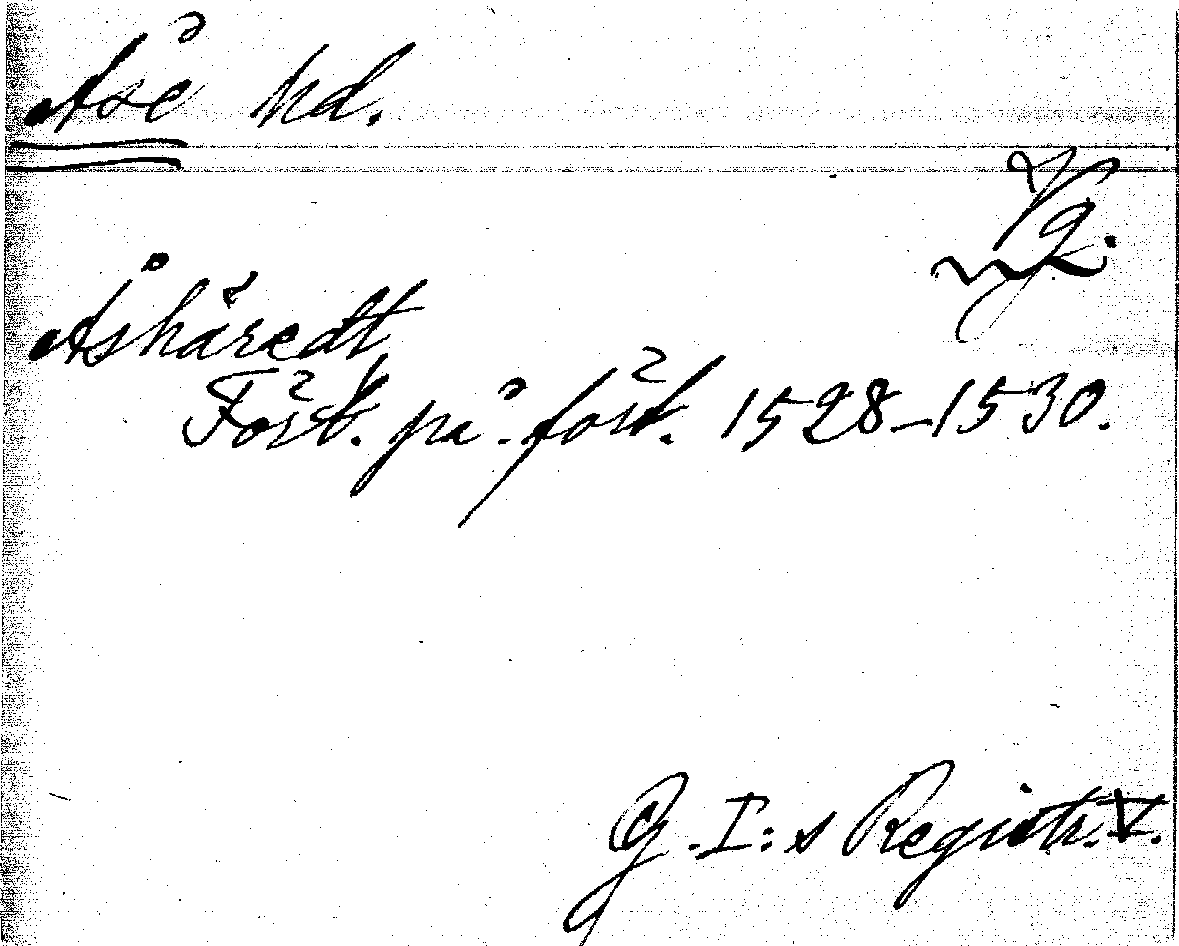 Åse hd.
Vg.
Åshäredt
Förk. på förk. 1528–1530.
G. I:s Registr. V.